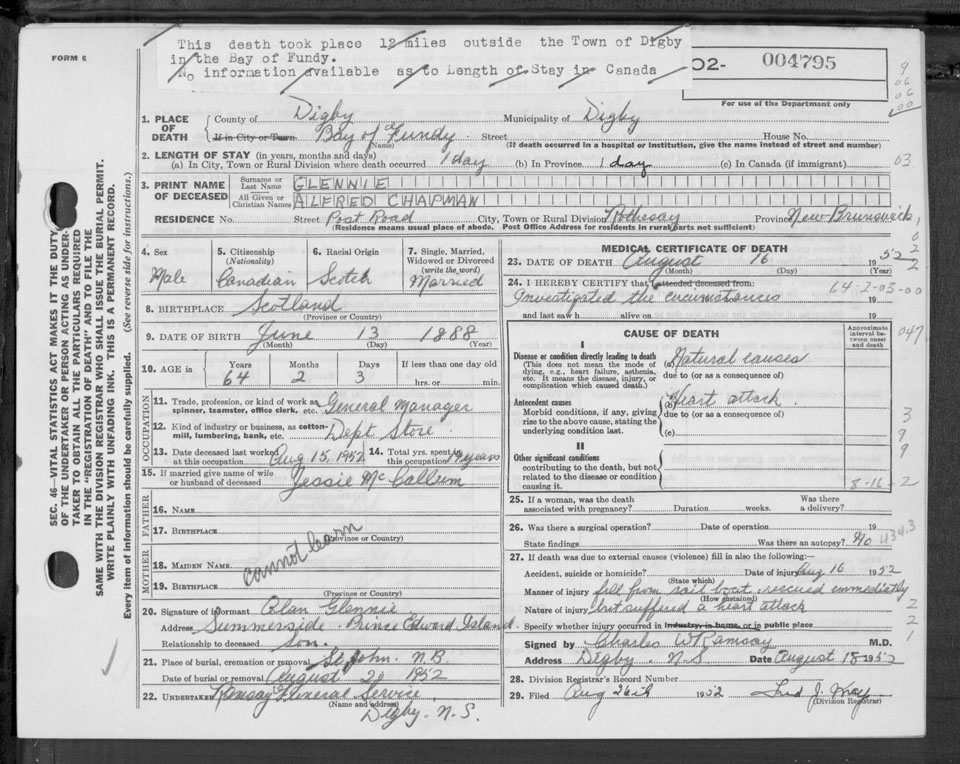 This death took place 12 miles outside the Town of Digby
in the Bay of Fundy.
No information available as to Length of Stay in Canada
FORM 6
02- 004795
For use of the Department only
9
06
06
00
1. PLACE OF DEATH
County of Digby Municipality of Digby
If in City or Town. Bay of Fundy Street House No.
(Name) (If death occurred in a hospital or institution, give the name instead of street and number)
2. LENGTH OF STAY (in years, months and days)
(a) In City, Town or Rural Division where death occurred 1 day (b) In Province 1 day (c) In Canada (if immigrant) 03
3. PRINT NAME OF DECEASED
Surname or Last Name GLENNIE
All Given or Christian Names ALFRED CHAPMAN
RESIDENCE No. Street Post Road City, Town or Rural Division Rothesay Province New Brunswick
(Residence means usual place of abode. Post Office Address for residents in rural parts not sufficient)
4. Sex
Male
5. Citizenship (Nationality)
Canadian
6. Racial Origin
Scotch
7. Single, Married, Widowed or Divorced (write the word)
Married
8. BIRTHPLACE Scotland
(Province or Country)
9. DATE OF BIRTH June 13 1888
(Month) (Day) (Year)
10. AGE in
Years Months Days If less than one day old
64 2 3 hrs. or min.
OCCUPATION
11. Trade, profession, or kind of work as spinner, teamster, office clerk, etc. General Manager
12. Kind of industry or business, as cotton-mill, lumbering, bank, etc. Dept Store
13. Date deceased last worked at this occupation Aug 15, 1952 14. Total yrs. spent in this occupation years
15. If married give name of wife or husband of deceased Jessie McCallum
FATHER
16. NAME
17. BIRTHPLACE
(Province or Country)
cannot learn
MOTHER
18. MAIDEN NAME
19. BIRTHPLACE
(Province or Country)
20. Signature of informant Alan Glennie
Address Summerside Prince Edward Island
Relationship to deceased Son.
21. Place of burial, cremation or removal St John. N.B.
Date of burial or removal August 20 1952
22. UNDERTAKER Ramsay Funeral Service
(Name and address)
Digby. N.S.
MEDICAL CERTIFICATE OF DEATH
23. DATE OF DEATH August 16 1952
(Month) (Day) (Year)
24. I HEREBY CERTIFY that I attended deceased from: 64-2-03-00
Investigated the circumstances 19
and last saw h alive on 19
CAUSE OF DEATH
Approximate interval between onset and death
047
I
Disease or condition directly leading to death (a) Natural causes
(This does not mean the mode of dying, e.g., heart failure, asthenia, etc. It means the disease, injury, or complication which caused death.)
due to (or as a consequence of)
Antecedent causes (b) Heart attack
Morbid conditions, if any, giving rise to the above cause, stating the underlying condition last.
due to (or as a consequence of)
(c)
3
9
9
II
Other significant conditions
contributing to the death, but not related to the disease or condition causing it.
8-16-2
25. If a woman, was the death associated with pregnancy? Duration weeks. Was there a delivery?
26. Was there a surgical operation? Date of operation 19
State findings Was there an autopsy? No 434.3
27. If death was due to external causes (violence) fill in also the following:—
Accident, suicide or homicide? Date of injury Aug 16 1952
(State which)
Manner of injury fell from sail boat, rescued immediately
(How sustained)
Nature of injury but suffered a heart attack
Specify whether injury occurred in industry, in home, or in public place
2
2
1
Signed by Charles W Ramsay M.D.
Address Digby. N.S Date August 18 1952
28. Division Registrar's Record Number
29. Filed Aug 26th 1952
(Division Registrar)
SEC. 46—VITAL STATISTICS ACT MAKES IT THE DUTY
OF THE UNDERTAKER OR PERSON ACTING AS UNDER-
TAKER TO OBTAIN ALL THE PARTICULARS REQUIRED
IN THE "REGISTRATION OF DEATH" AND TO FILE THE
SAME WITH THE DIVISION REGISTRAR WHO SHALL ISSUE THE BURIAL PERMIT.
WRITE PLAINLY WITH UNFADING INK. THIS IS A PERMANENT RECORD.
Every item of information should be carefully supplied. (See reverse side for instructions.)